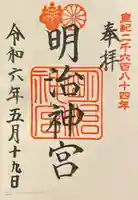 皇紀二千六百八十四年
奉拝
明治神宮
令和六年五月十九日